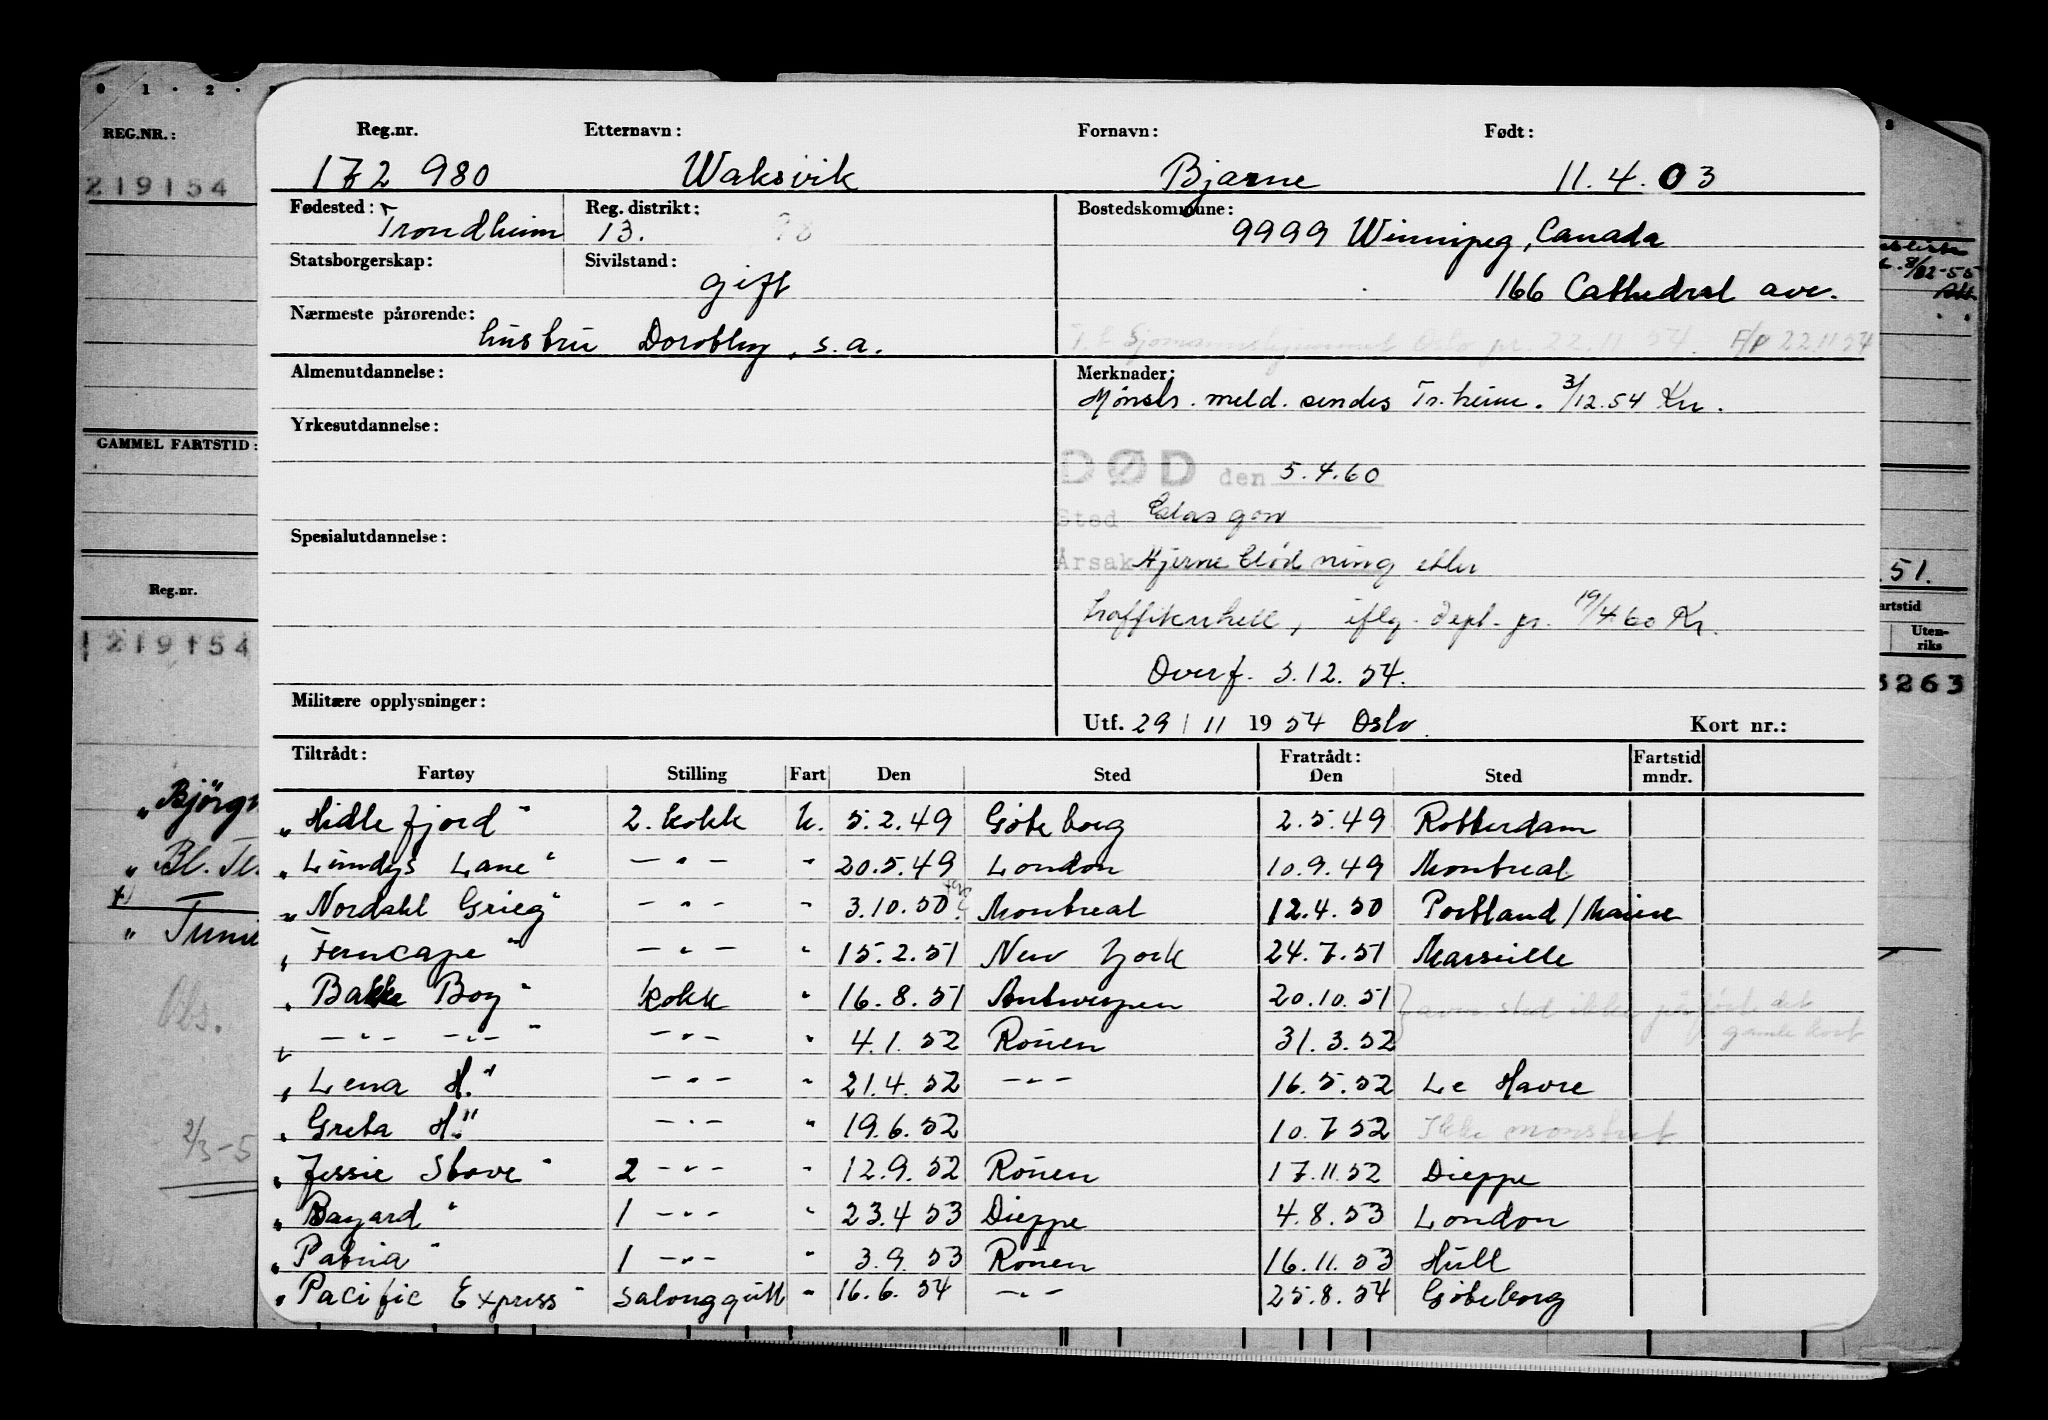 0 1 . 2 .
REG.NR.:
219154
GAMMEL FARTSTID:
Reg.nr.
219154
„Bjørg
„ Bl.
„
Obs.
2/3-5
Reg.nr. Etternavn: Fornavn: Født:
172 980 Waksvik Bjarne 11.4.03
Fødested: Trondheim Reg. distrikt: 13. Bostedskommune: 9999 Winnipeg, Canada
Statsborgerskap: Sivilstand: gift 166 Cathedral ave.
Nærmeste pårørende: hustru Dorothy, s.a.
22.11.54. 22.11.54
Almenutdannelse: Merknader:
Mønstr. meld. sendes Tr.heim. 3/12.54 Kr.
Yrkesutdannelse:
DØD den 5.4.60
Sted Glasgow
Spesialutdannelse: Årsak Hjerneblødning etter
traffikuhell, iflg. dept. pr. 19/4.60 Kr.
Overf. 3.12.54.
Militære opplysninger: Utf. 29/11 1954 Oslo. Kort nr.:
Tiltrådt: Fratrådt: Fartstid
Fartøy Stilling Fart Den Sted Den Sted mndr.
„Hidlefjord" 2. kokk u. 5.2.49 Göteborg 2.5.49 Rotterdam
„Lundys Lane" —"— " 20.5.49 London 10.9.49 Montreal
„Nordahl Grieg" —"— " 3.10.50 Montreal 12.4.50 Portland/Maine
„Ferncape" —"— " 15.2.51 New York 24.7.51 Marseille
„Bakke Boy" kokk " 16.8.51 Antwerpen 20.10.51
„—"— —"—" —"— " 4.1.52 Rouen 31.3.52
avm. sted ikke påført det
gamle kort
„Lena H." —"— " 21.4.52 —"— 16.5.52 Le Havre
„Greta H." —"— " 19.6.52 10.7.52 Ikke mønstret
„Jessie Stove" 2 —"— " 12.9.52 Rouen 17.11.52 Dieppe
„Bayard" 1 —"— " 23.4.53 Dieppe 4.8.53 London
„Patria" 1 —"— " 3.9.53 Rouen 16.11.53 Hull
„Pacific Express" salonggutt " 16.6.54 —"— 25.8.54 Göteborg
8/02-55
51.
artstid
Uten-
riks
3263